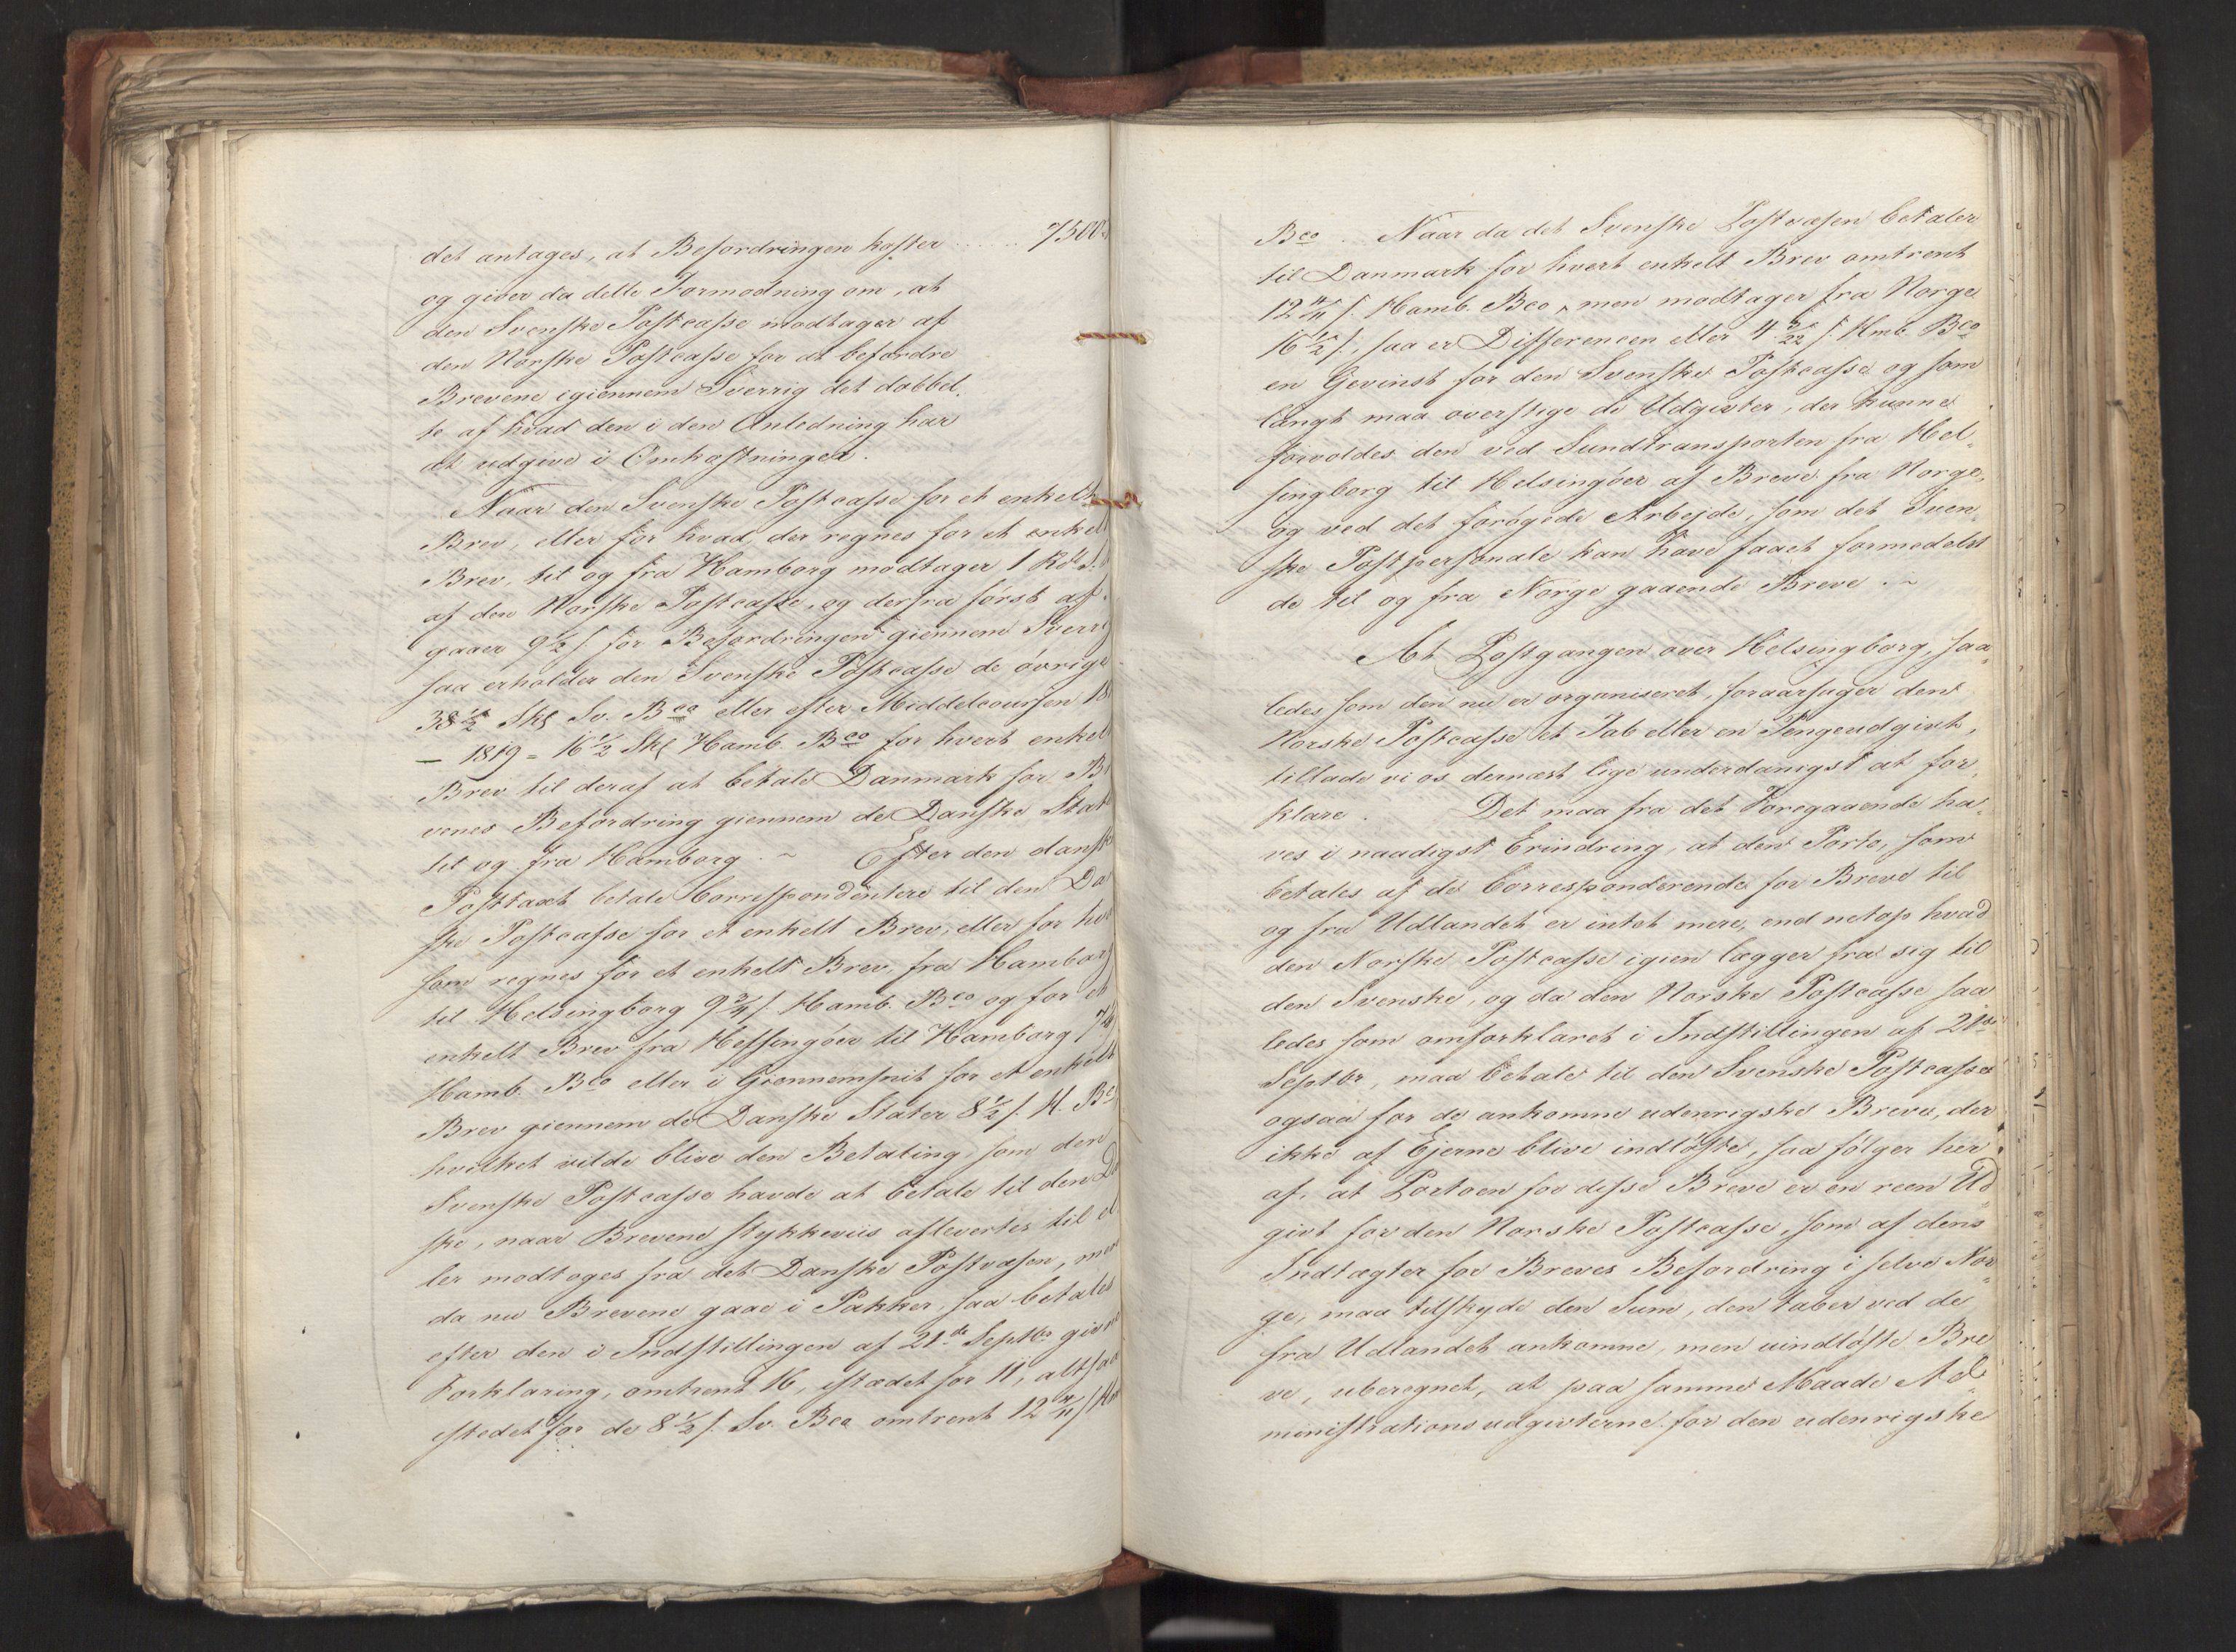 det antages, at Befordringen koster ..... 7500
og giver da dette Formodning om, at
den Svenske Postcasse modtager af
den Norske Postcasse for at befordre
Brevene igiennem Sverrig det dobbel-
te af hvad den i den Anledning har
at udgive i Omkostninger.
Naar den Svenske Postcasse for et enkelt
Brev, eller for hvad der regnes for et enkelt
Brev, til og fra Hamborg modtager 1 Rdr S.
af den Norske Postcasse, og derfra først af-
gaaer 9½ s for Befordringen giennem Sverri
saa erholder den Svenske Postcasse de øvrige
38½ Sk Sv. Bco eller efter Middelcoursen 18
— 1819 = 16½ Sk Hamb. Bco for hvert enkelt
Brev til deraf at betale Danmark for Br
venes Befordring giennem de Danske Stat
til og fra Hamborg. ~ Efter den dansk
Posttaxt betale Correspondentere til den Da
ske Postcasse for et enkelt Brev, eller for hv
som regnes for et enkelt Brev fra Hamborg
til Helsingborg 9¾ s. Hamb. Bco og for et
enkelt Brev fra Helsingøer til Hamborg 7
Hamb. Bco eller i Giennemsnit for et enkelt
Brev giennem de Danske Stater 8½ s. H. Bc
hvilket vilde blive den Betaling, som den
Svenske Postcasse havde at betale til den Da
ske, naar Brevene stykkeviis afleveres til el
ler modtoges fra det Danske Postvæsen, men
da nu Brevene gaae i Pakker, saa betales
efter den i Indstillingen af 21de Septbr givne
Forklaring, omtrent 16, istædet for 11, altsaa
istedet for de 8½ s. Sv. Bco omtrent 12 4/11 s Ha
Bco . Naar da det Svenske Postvæsen betaler
til Danmark for hvert enkelt Brev omtrent
12 4/11 s. Hamb. Bco, men modtager fra Norge
16½ s., saa er Differencen eller 4 3/22 s. Hmb. Bco
en Gevinst for den Svenske Postcasse og som
langt maa overstige de Udgivter, der kunne
forvoldes den ved Sundtransporten fra Hel-
singborg til Helsingøer af Breve fra Norge,
og ved det forøgede Arbejde, som det Sven-
ske Postpersonale kan have faaet formedelst
de til og fra Norge gaaende Breve. ~
At Postgangen over Helsingborg, saa-
ledes som den nu er organiseret, foraarsager den
Norske Postcasse et Tab eller en Pengeudgivt,
tillade vi os dernæst lige underdanigst at for-
klare. Det maa fra det Foregaaende ha-
ves i naadigst Erindring, at den Porto, som
betales af de Corresponderende for Breve til
og fra Udlandet er intet mere, end netop hvad
den Norske Postcasse igien lægger fra sig til
den Svenske, og da den Norske Postcasse saa
ledes som omforklaret i Indstillingen af 21de
Septbr, maa betale til den Svenske Postcasse
ogsaa for de ankomne udenrigske Breve, der
ikke af Ejerne blive indløste, saa følger her
af, at Portoen for disse Breve er en reen Ud-
givt for den Norske Postcasse, som af dens
Indtægter for Breves Befordring i selve Nor-
ge, maa tilskyde den Sum, den taber ved de
fra Udlandet ankomne, men uindløste Bre
ve, uberegnet, at paa samme Maade Ad-
ministrationsudgivterne for den udenrigske